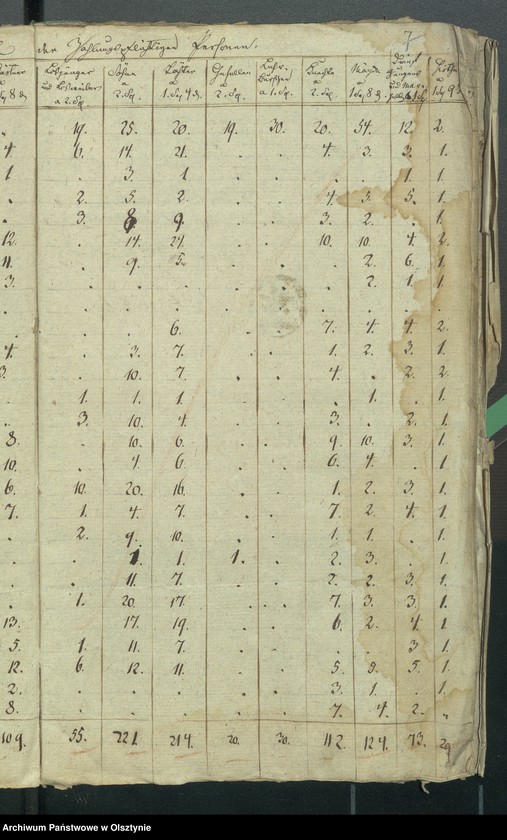 der Zahlungspflichtigen Personen. 7
Söhne Töchter Gesellen Knechte Mägde
a 2. Sg. a 2. Sg. 1. Sg 4 d. a 2. Sg. a 1. Sg. 2. Sg. 1 Sg. 8 d.
. 19. 25. 20. 19. 30. 20. 54. 12. 2.
4. 6. 14. 21. . . 4. 3. 3. 1.
1 . 3. 1 . . . . 1 1.
. 2. 5. 2. . . 4. 3. 5. 1.
. 3. 8 9. . . 3. 2. . 1.
12. . 14. 24. . . 10. 10. 4. 2.
11. . 9. 5. . . . 2. 6. 1.
3. . . . . . . 2. 1. 1.
. . . . . . . . . .
. . . 6. . . 7. 4. 4. 2.
4. . 3. 7. . . 1. 2. 3. 1.
3. . 10. 7. . . 4. . 2. 2.
. 1. 1. 1. . . . 1. . 1.
. 3. 10. 4. . . 3. . 2. 1.
8. . 10. 6. . . 9. 10. 3. 1.
10. . 4. 6. . . 6. 4. . 1.
6. 10. 20. 16. . . 1. 2. 3. 1.
7. 1. 4. 7. . . 7. 2. 4. 1.
. 2. 9. 10. . . 1. 1. . 1.
. . 1. 1. 1. . 2. 3. . 1.
. . 11. 7. . . 2. 2. 3. 1.
. 1. 20. 17. . . 7. 3. 3. 1.
13. . 17. 19. . . 6. 2. 4. 1.
5. 1. 11. 7. . . . . 3 1.
12. 6. 12. 11. . . 5. 9. 5. 1.
2. . . . . . 3. 1. . 1.
8. . . . . . 7. 4. 2. "
109. 55. 221. 214. 20. 30. 112. 124. 73. 29
Archiwum Państwowe w Olsztynie